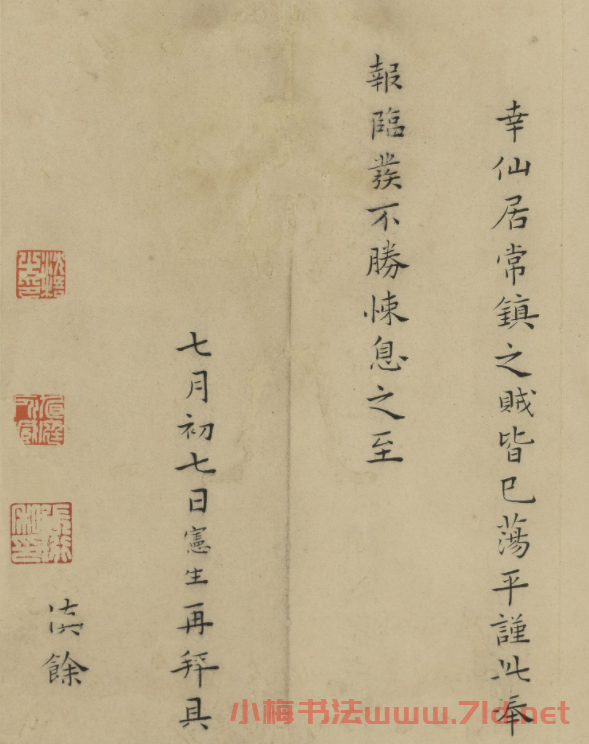 幸仙居常鎮之賊皆已蕩平謹此奉
報臨發不勝悚息之至
七月初七日憲生再拜具
慎餘
小梅书法www.7ld.net